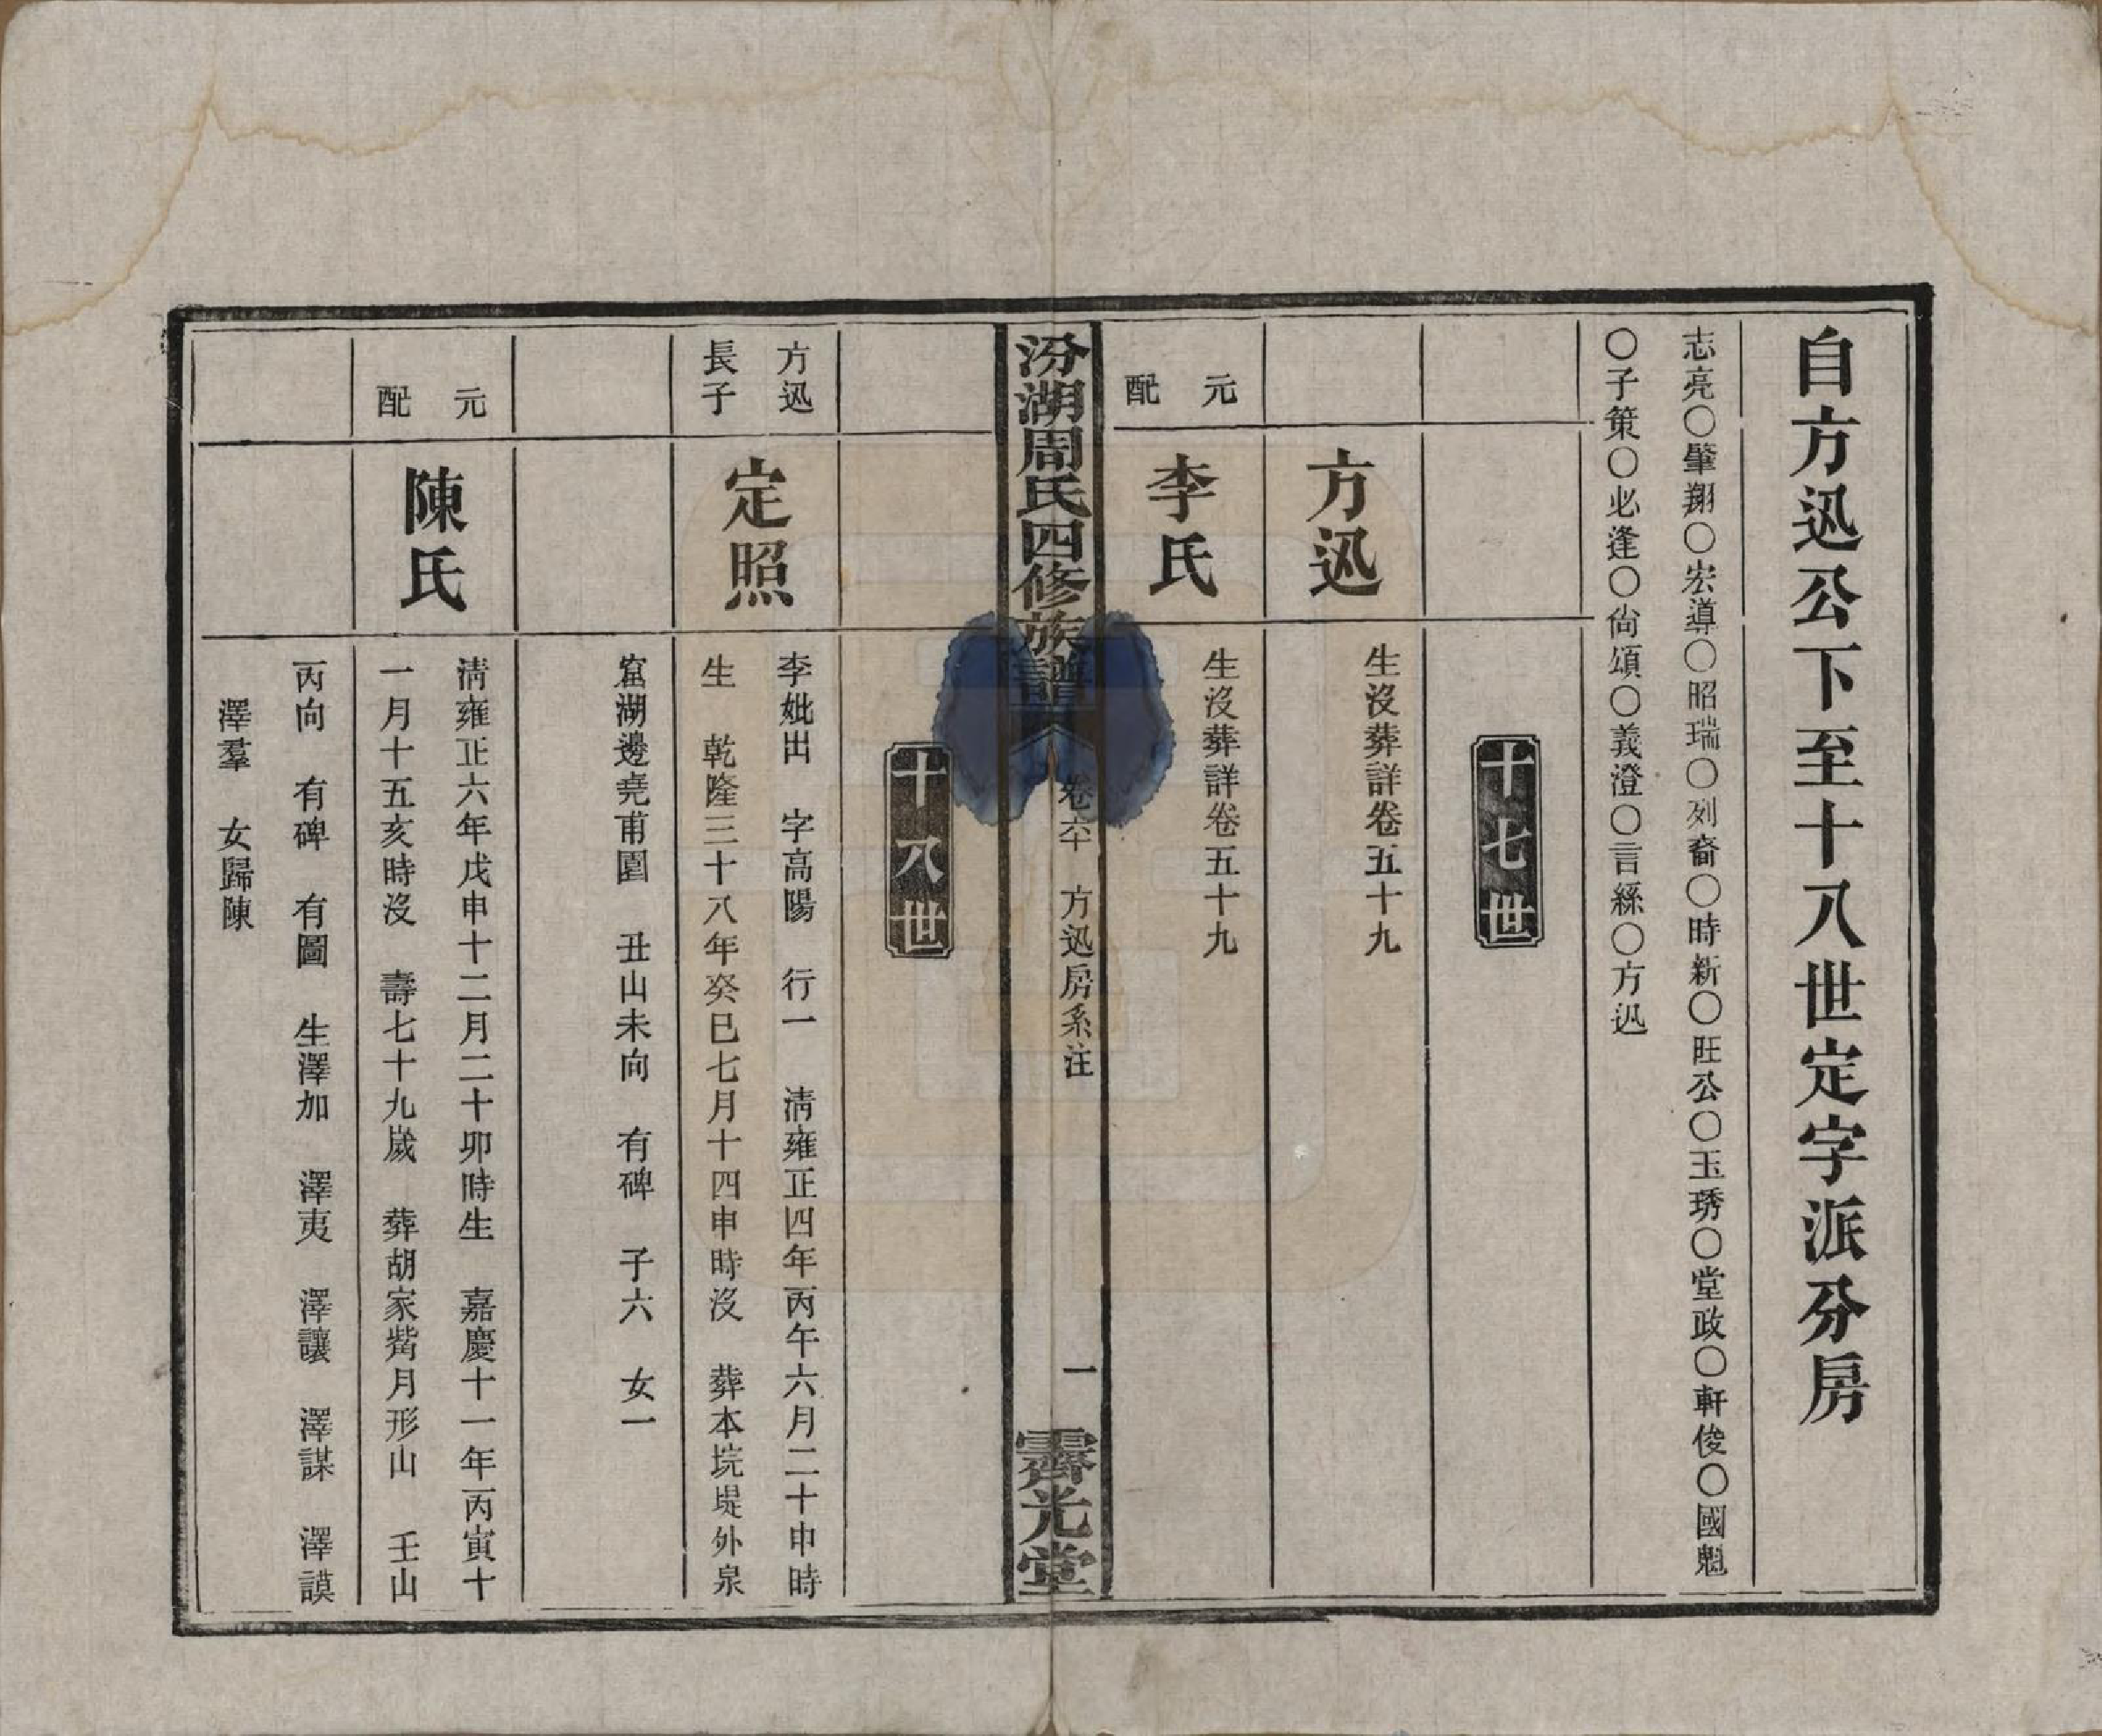 自方迅公下至十八世定字派分房
志亮〇肇翔〇宏導〇昭瑞〇列裔〇時新〇旺公〇玉琇〇堂政〇軒俊〇國魁
〇子策〇必逢〇尙頌〇義澄〇言絲〇方迅
十七世
方迅
生沒葬詳卷五十九
元配
李氏
生沒葬詳卷五十九
汾湖周氏四修族譜
卷六十
方迅房系注
一
霽光堂
十八世
方迅長子
定照
李妣出 字高陽 行一 淸雍正四年丙午六月二十申時
生 乾隆三十八年癸巳七月十四申時沒 葬本垸堤外泉
窟湖邊堯甫園 丑山未向 有碑 子六 女一
元配
陳氏
淸雍正六年戊申十二月二十卯時生 嘉慶十一年丙寅十
一月十五亥時沒 壽七十九歲 葬胡家觜月形山 壬山
丙向 有碑 有圖 生澤加 澤夷 澤讓 澤謀 澤謨
澤羣 女歸陳